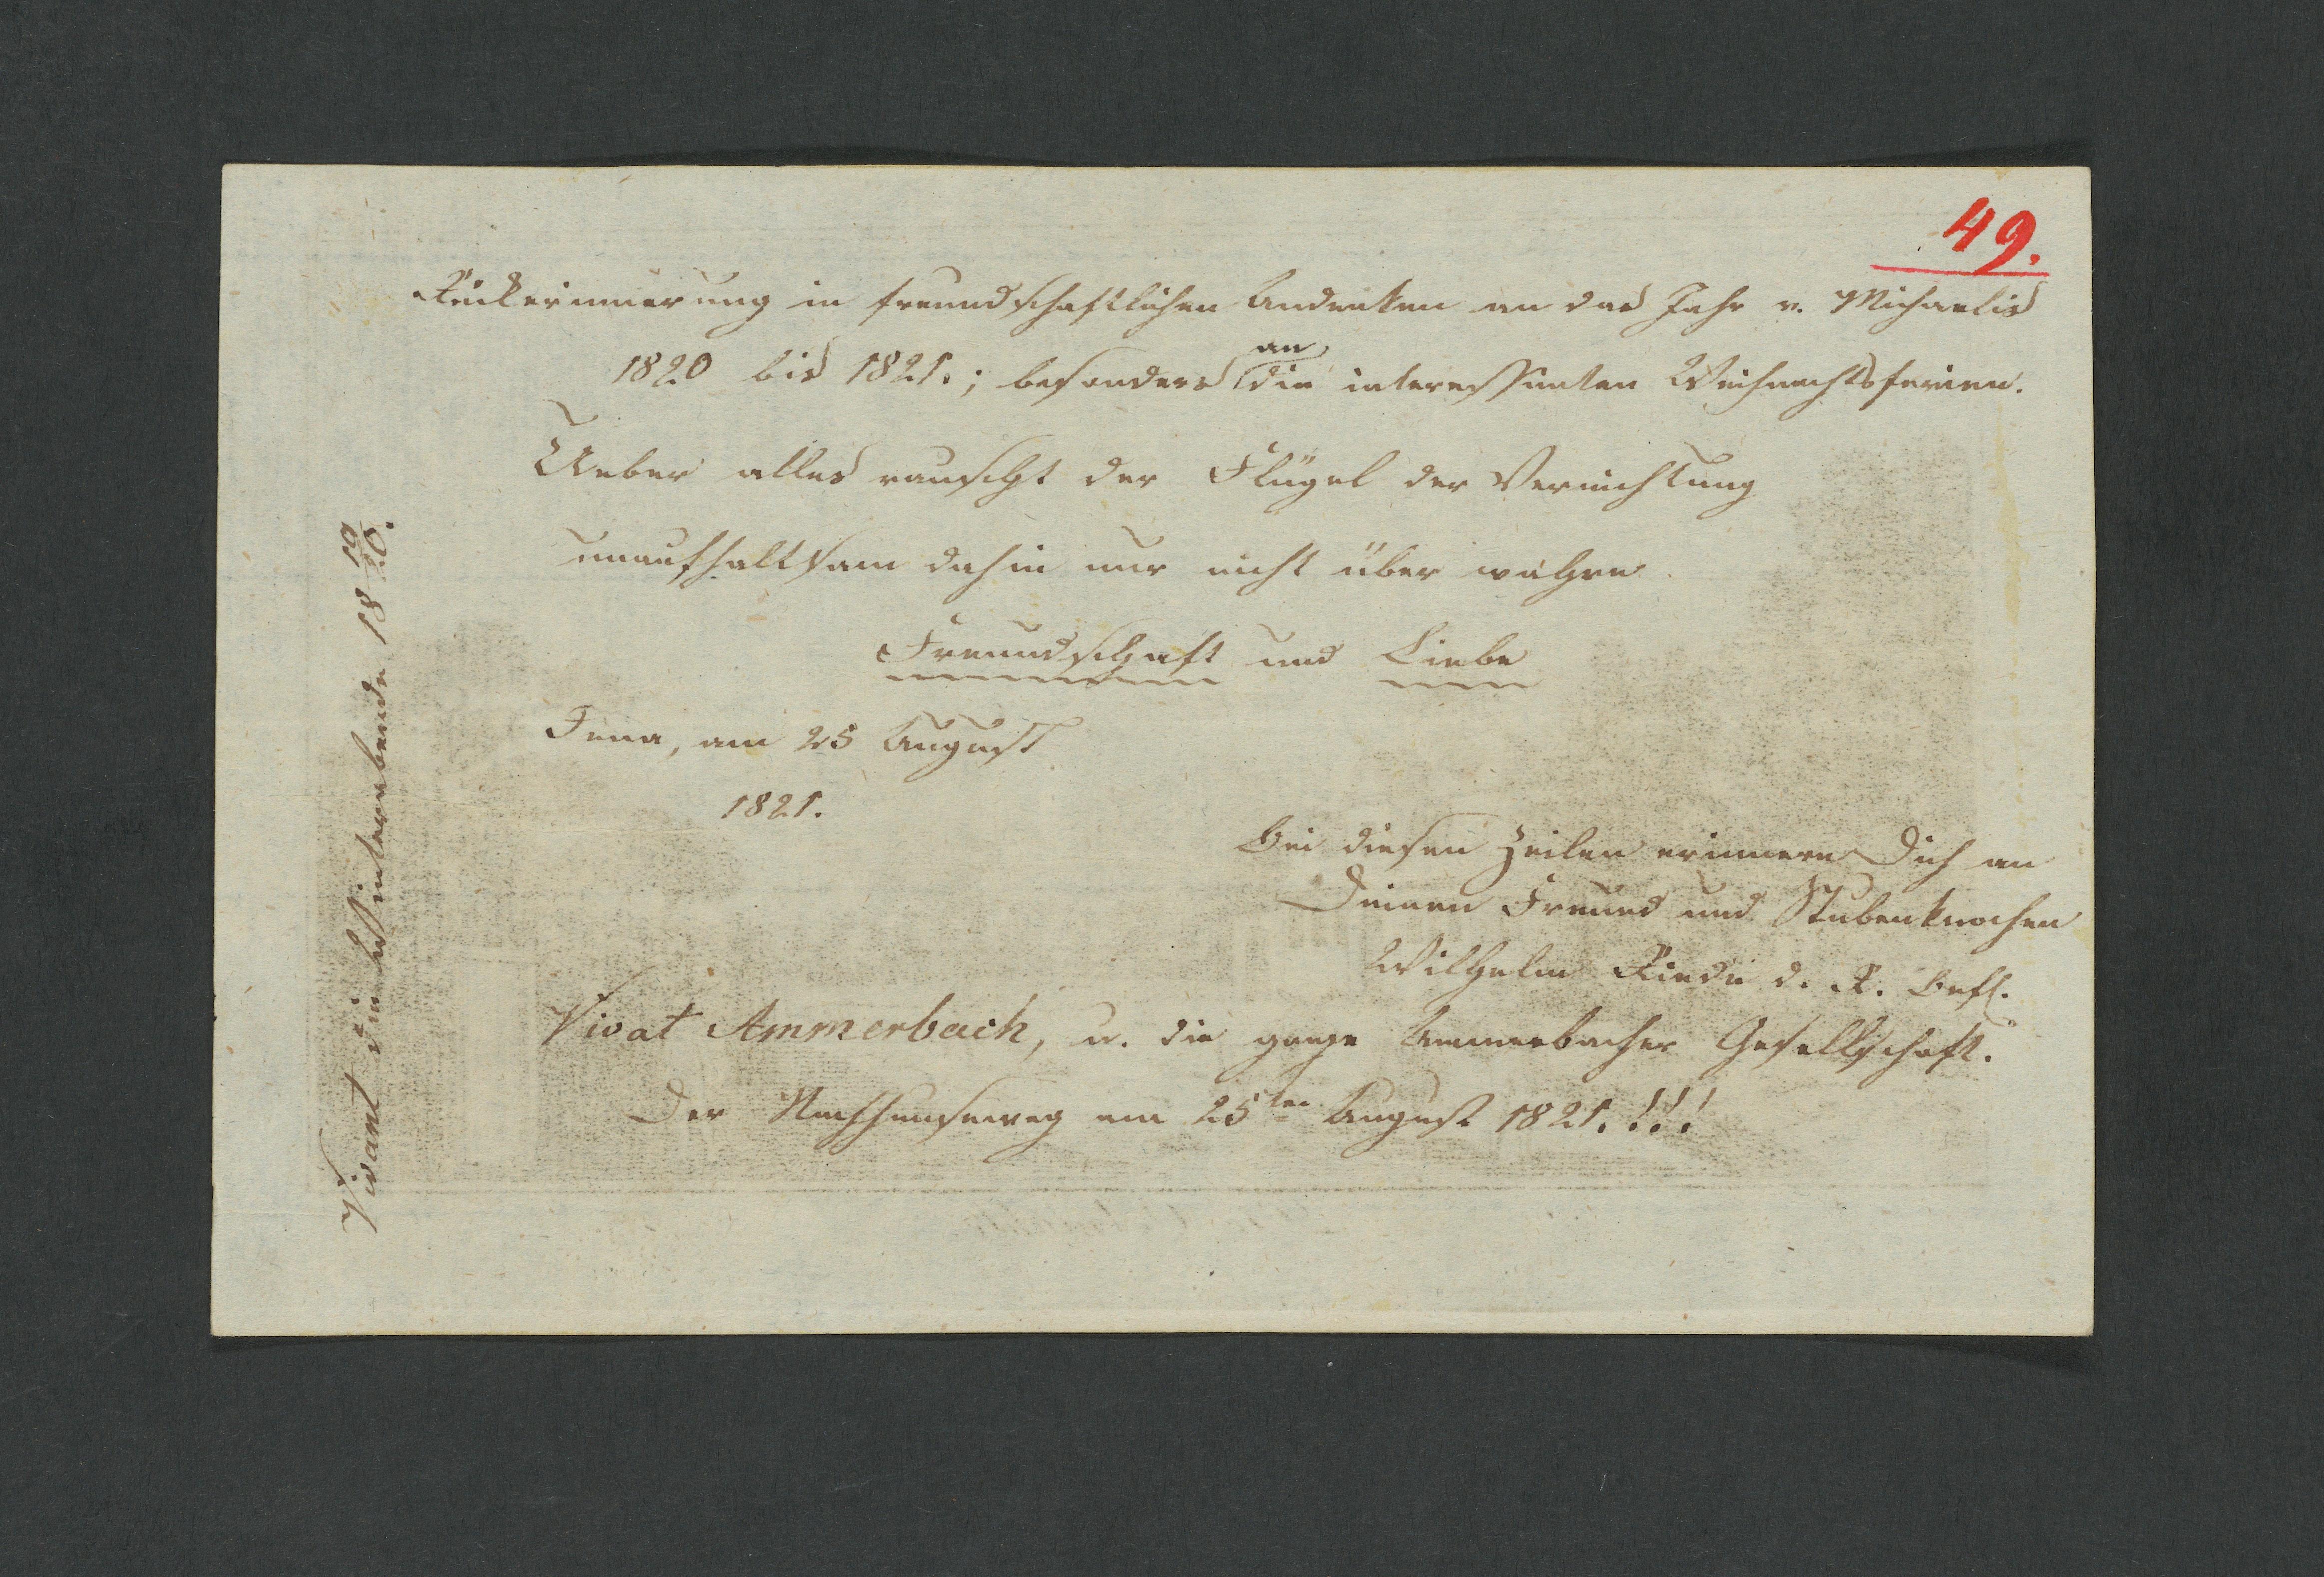 49.
Rückerinnerung in freundschaftlichen Andenken an das Jahr v. Michaelis
1820 bis 1821.; besonders an die interessanten Weihnachtsferien.
Ueber alles rauscht der Flügel der Vernichtung
unaufhaltsam dahin nur nicht über wahre
Freundschaft und Liebe
Jena, am 25 August
1821.
Bei diesen Zeilen erinnere Dich an
Deinen Freund und Stubenknochen
Wilhelm d. R. Befl.
Vivat Ammerbach, u. die ganze Ammerbacher Gesellschaft.
Der am 25ten August 1821.!!!
Vivant die 18 19/20.